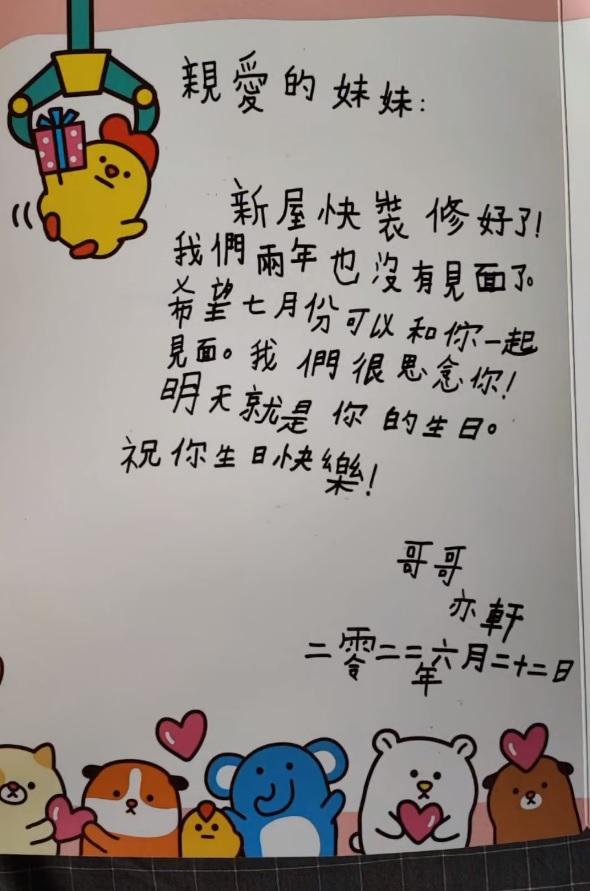 親愛的妹妹:
新屋快裝修好了!
我們兩年也沒有見面了。
希望七月份可以和你一起
見面。我們很思念你!
明天就是你的生日。
祝你生日快樂!
哥哥
亦軒
二零二二年六月二十二日